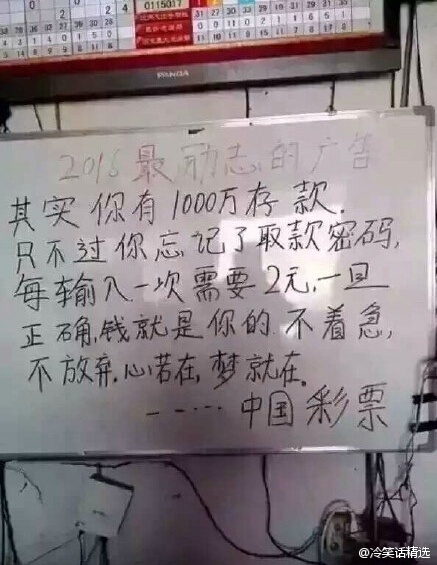 0115017
PANDA
2016最励志的广告
其实你有1000万存款.
只不过你忘记了取款密码,
每输入一次需要2元,一旦
正确,钱就是你的.不着急,
不放弃.心若在,梦就在.
-----中国彩票
@冷笑话精选